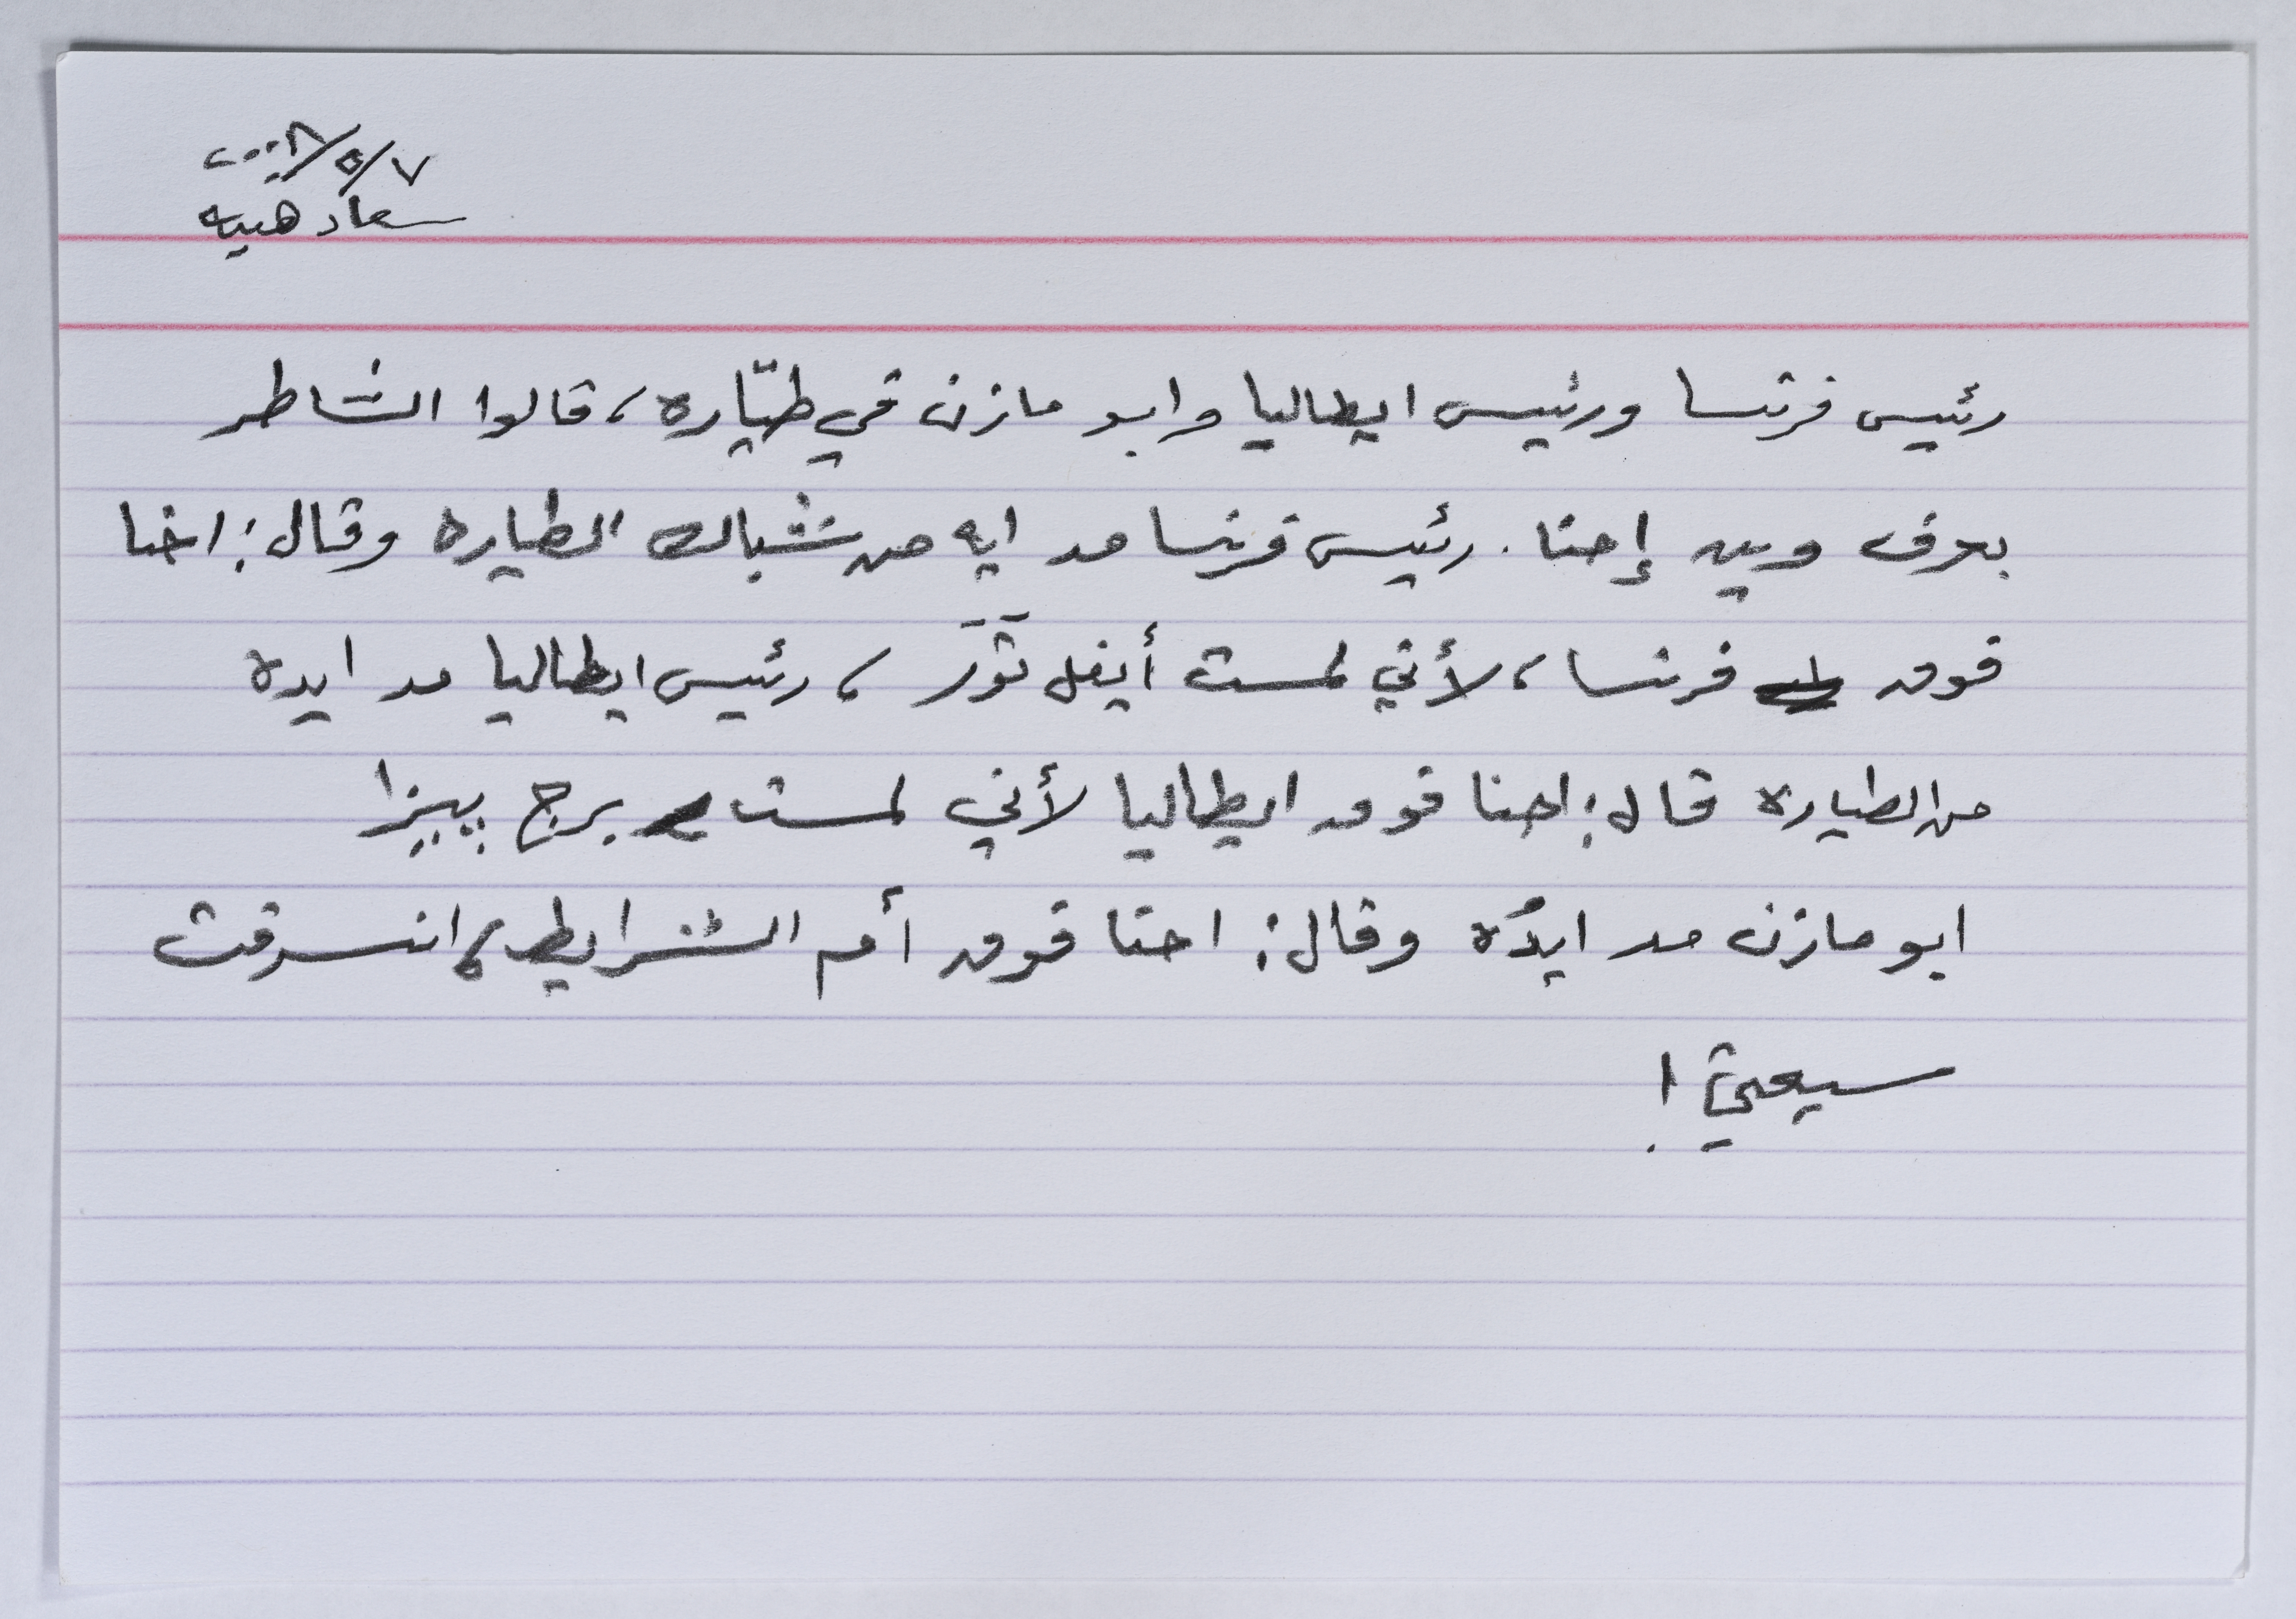 ٢٠٠٨/٥/٧
سعاد هبيه
رئيس فرنسا ورئيس ايطاليا وابو مازن في طيّاره، قالوا الشاطر
بعرف وين إحنا. رئيس فرنسا مد ايه من شباك الطياره وقال: احنا
فوق فرنسا، لأني لمست أيفل تَوَر، رئيس ايطاليا مد ايده
من الطياره قال: احنا فوق ايطاليا لأني لمست برج بيزا
ابو مازن مد ايدُه وقال: احنا فوق أم الشرايط، انسرقت
سيعتي!